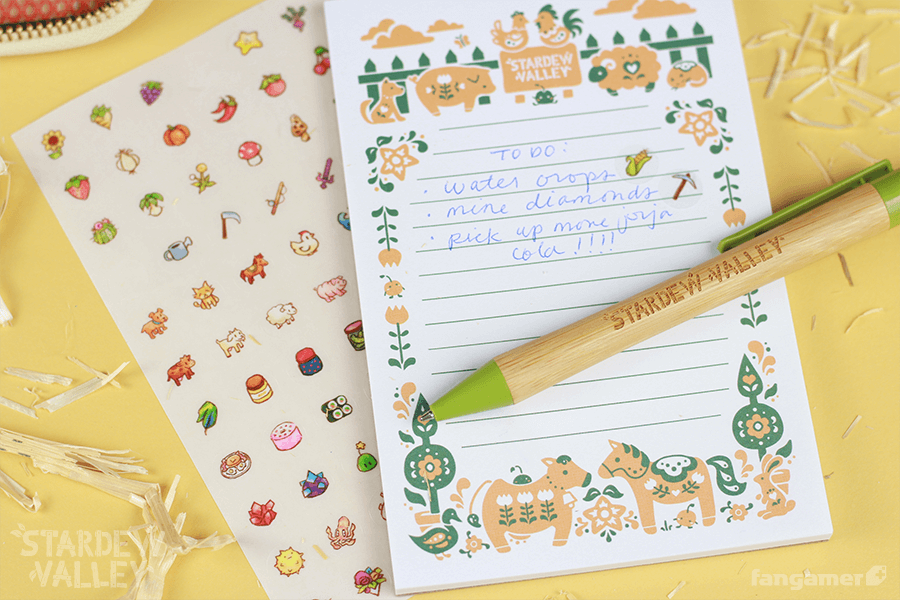 fangamer
STARDEW
VALLEY
TO DO:
· water crops
· mine diamonds
· pick up more joja
cola !!!!
STARDEW VALLEY
STARDEW
VALLEY
fangamer